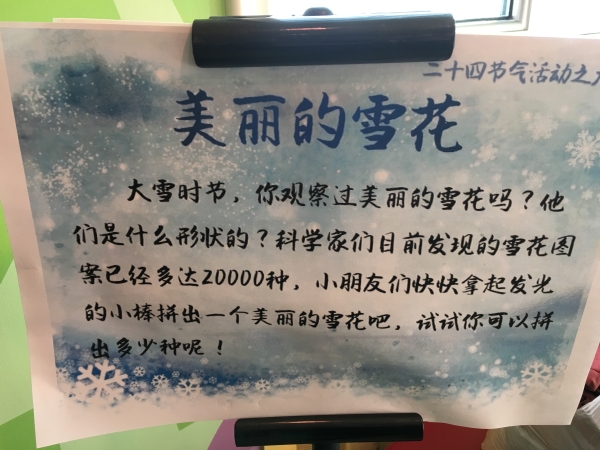 二十四节气活动之
美丽的雪花
大雪时节，你观察过美丽的雪花吗？他
们是什么形状的？科学家们目前发现的雪花图
案已经多达20000种，小朋友们快快拿起发光
的小棒拼出一个美丽的雪花吧，试试你可以拼
出多少种呢！